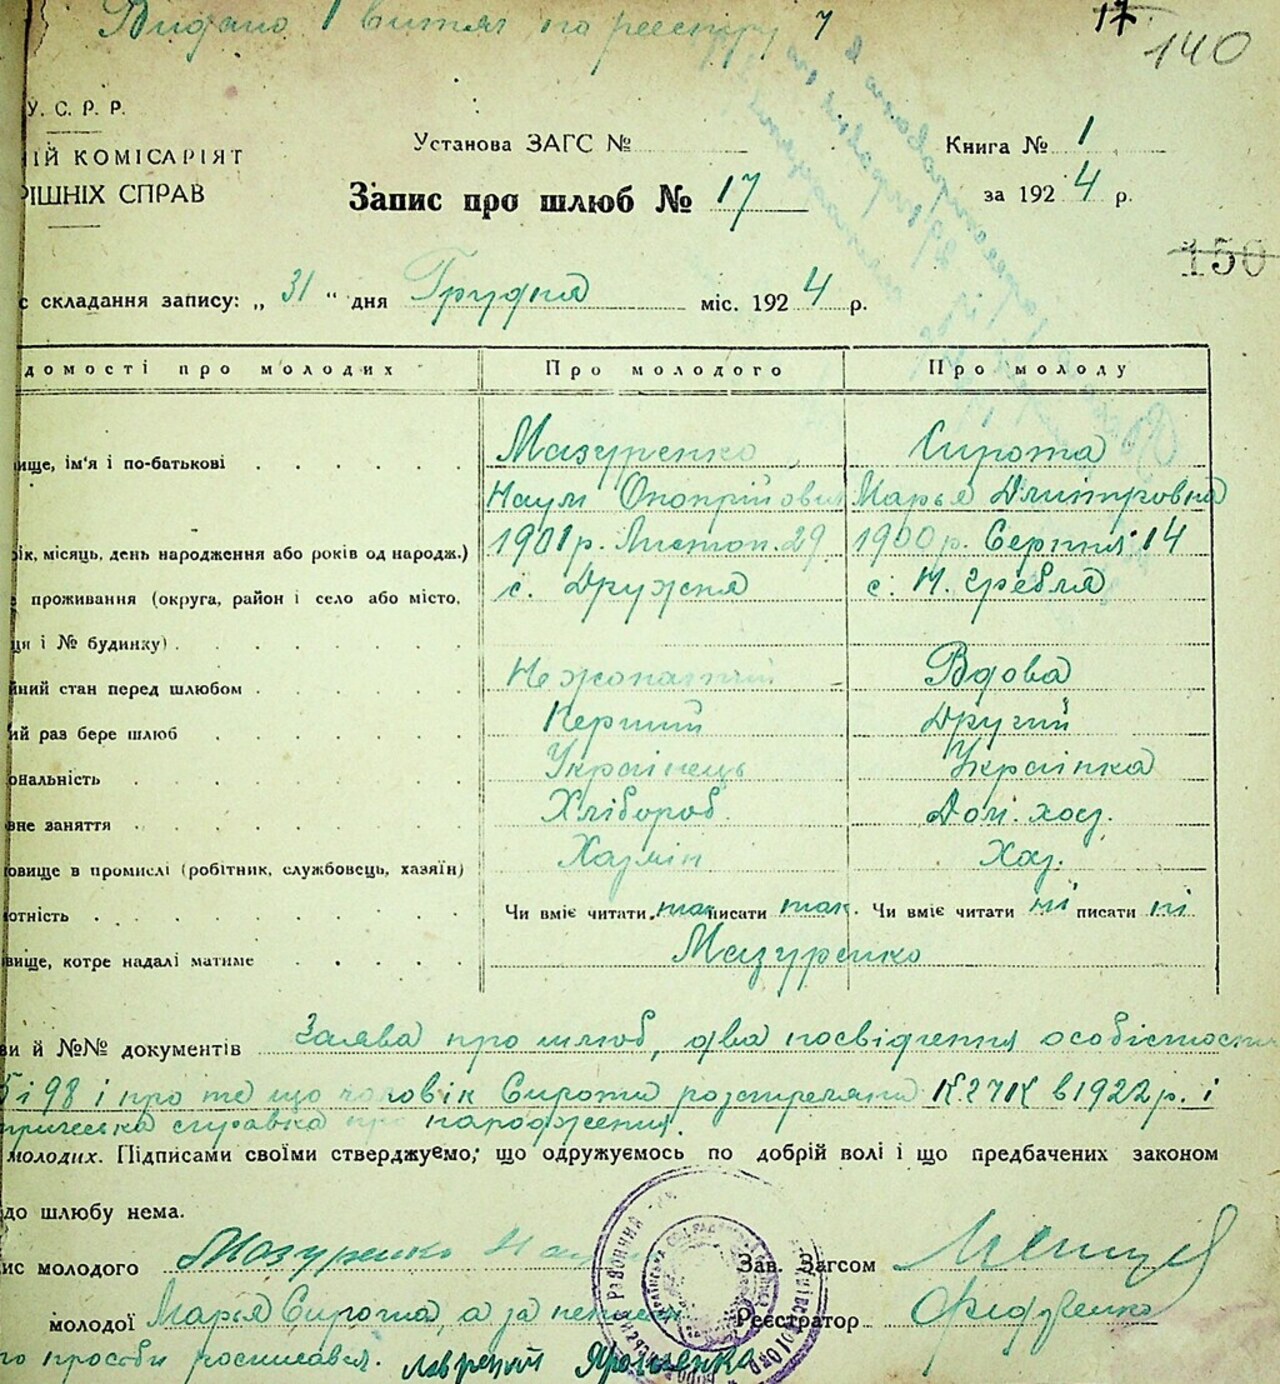 Видано 1 витяг по реєстру 7
17
140
У. С. Р. Р.
ІЙ КОМІСАРІЯТ
РІШНІХ СПРАВ
Установа ЗАГС №
Книга № 1
Запис про шлюб № 17
за 1924 р.
150
с складання запису: „ 31 “ дня Грудня міс. 1924 р.
домості про молодих Про молодого Про молоду
ище, ім'я і по-батькові Мазуренко Сирота
Наум Онопрійович Марья Дмитровна
ік, місяць, день народження або років од народж.) 1901 р. Листоп. 29 1900 р. Серпня 14
проживання (округа, район і село або місто, с. Дружня с. Н. Гребля
ця і № будинку)
йний стан перед шлюбом Не жонатий Вдова
ий раз бере шлюб Перший Другий
ональність Українець Українка
вне заняття Хлібороб. Дом. хоз.
овище в промислі (робітник, службовець, хазяїн) Хазяін Хаз.
отність Чи вміє читати так писати так. Чи вміє читати ні писати ні
вище, котре надалі матиме Мазуренко
ви й №№ документів Заява про шлюб, два посвідчення особістости
5 і 98 і про те що чоловік Сироти розтреляний К. 2 ЧК в 1922 р. і
справка про народження.
молодих. Підписами своїми стверджуємо, що одружуємось по добрій волі і що предбачених законом
до шлюбу нема.
ис молодого Мазуренко Наум
Зав. Загсом
молодої Марія Сирота, а за
Реєстратор
го прозби росписався. Лаврентій Ярошенко